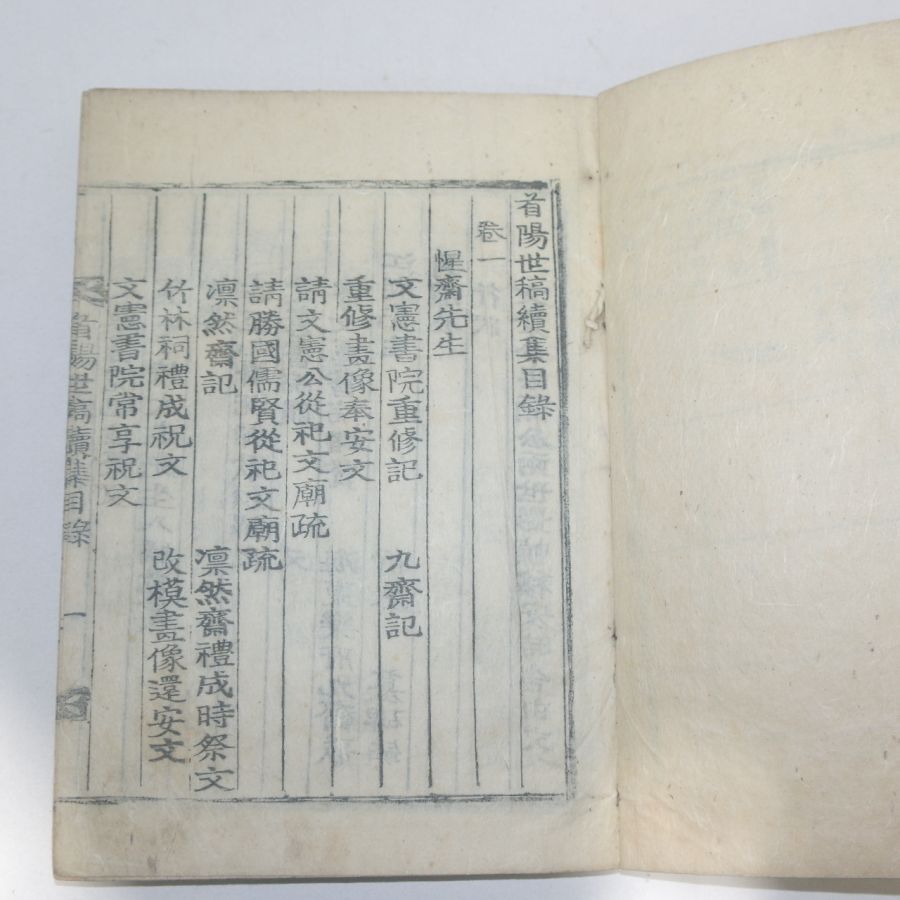 首陽世稿續集目錄
卷一
惺齋先生
文憲書院重修記 九齋記
重修畫像奉安文
請文憲公從祀文廟疏
請勝國儒賢從祀文廟疏
凛然齋記 凛然齋禮成時祭文
竹林祠禮成祝文 改模畫像還安文
文憲書院常享祝文
首陽世稿續集目錄 一